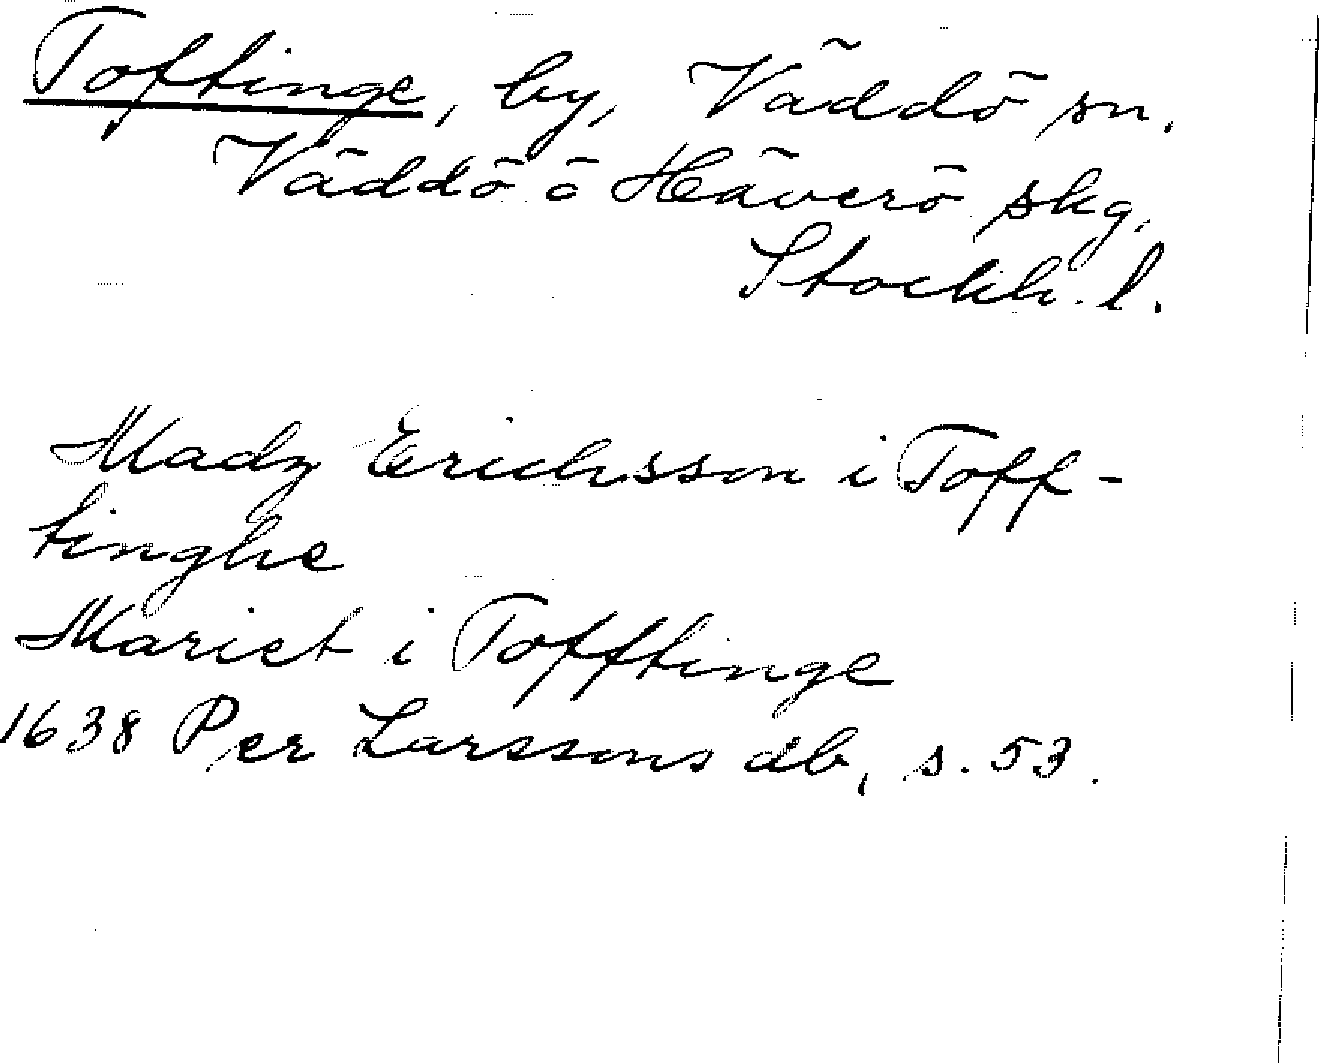 Toftinge, by, Väddö sn.
Väddö o Häverö skg.
Stockh. l.
Madz Erichsson i Toff-
tinghe
Mariet i Tofftinge
1638 Per Larssons db, s. 53.